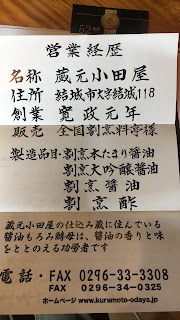 営業経歴
名称 蔵元小田屋
住所 結城市大字結城118
創業 寛政元年
販売 全国割烹料亭様
製造品目・割烹本たまり醤油
割烹大吟醸醤油
割烹醤油
割烹酢
蔵元小田屋の仕込み蔵に住んでいる
醤油もろみ酵母は、醤油の香りと味
をととのえる功労者です
電話・FAX 0296-33-3308
FAX 0296-34-0325
ホームページ www.kuramoto-odaya.jp